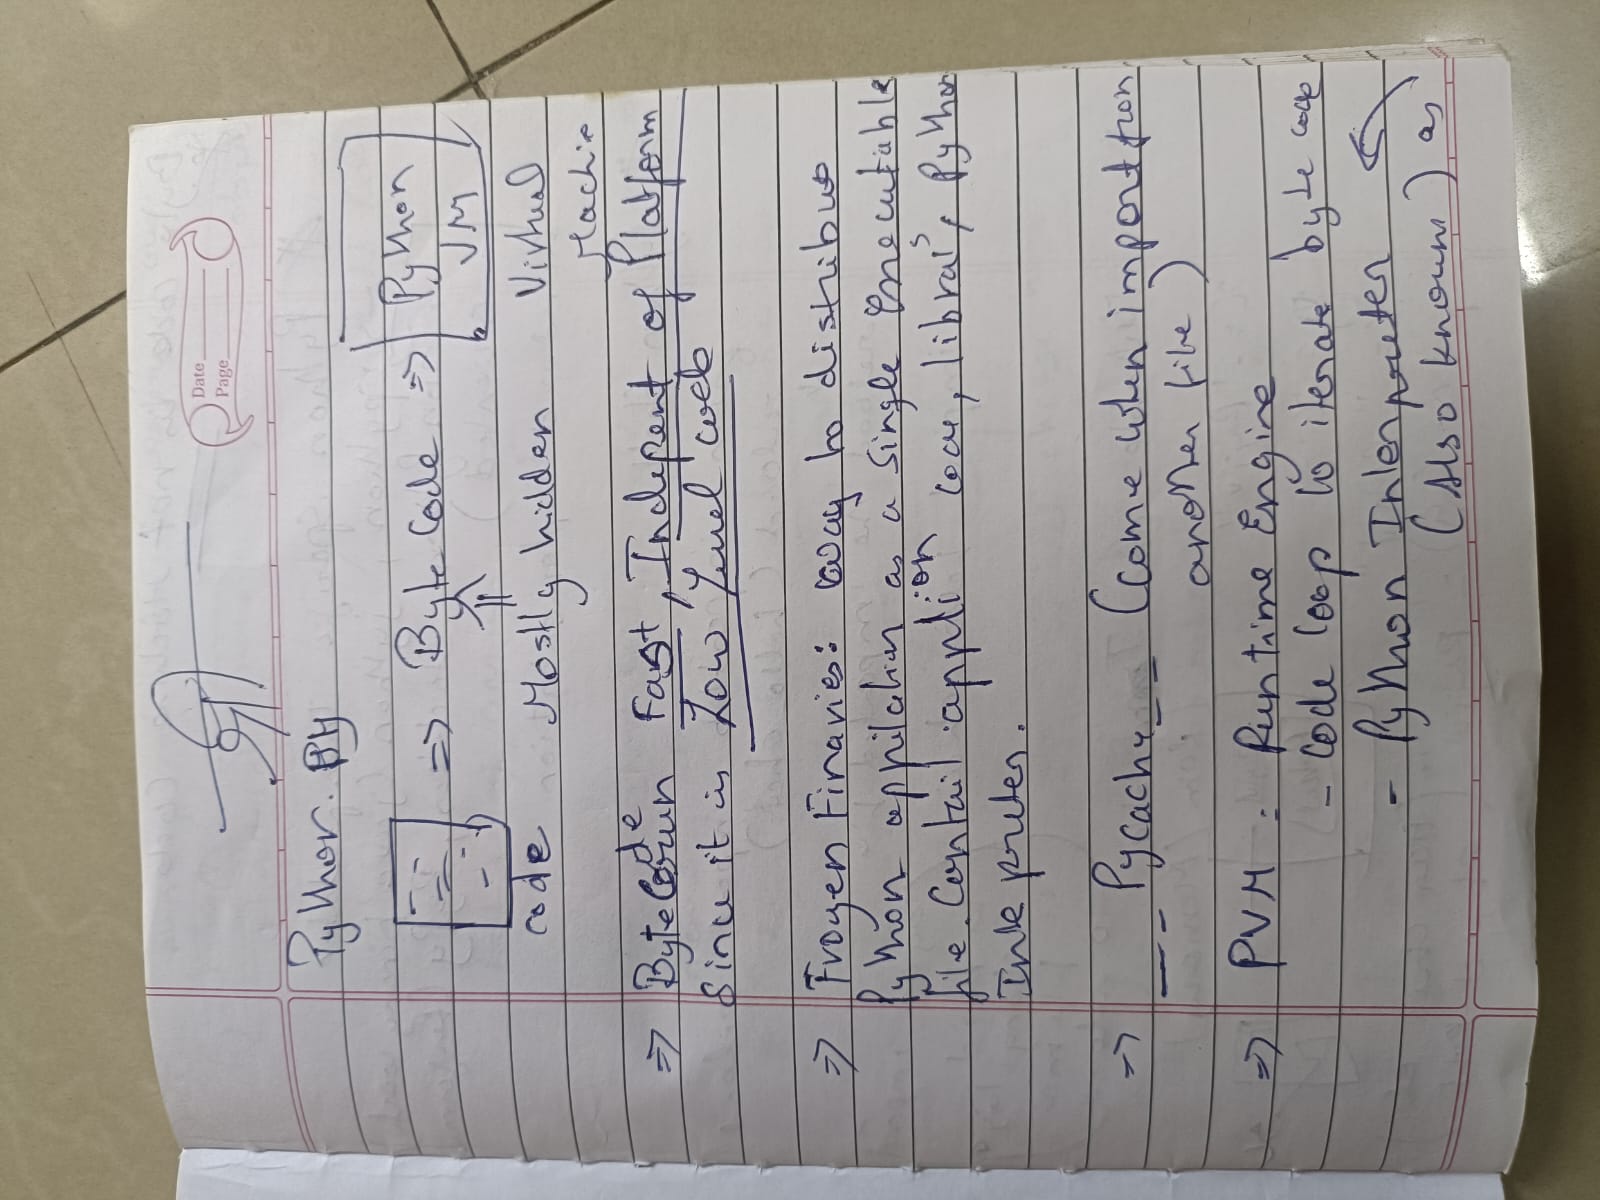 Date
Page
Python. PY
⇒ Byte Code ⇒ Python
VM
code Mostly hidden Virtual
Machie
⇒ Byte Code run Fast, Indepent of Platform
since it is Low level code
⇒ Frozen Finaries: way to distribue
Python appilation as a single executable
file. Contail appliion code, librai's, Python
Inte preter.
⇒ __ Pycache __ (come when import from
another file)
⇒ PVM : Runtime Engine
- code loop to iterate byte code
- Python Interpreter
(Also known) as